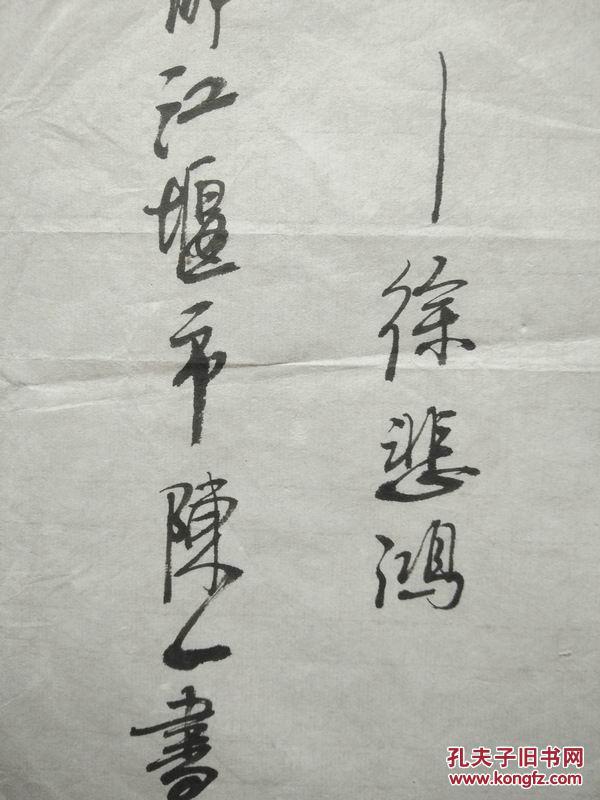 —徐悲鸿
江堰市陳一書
孔夫子旧书网
www.kongfz.com